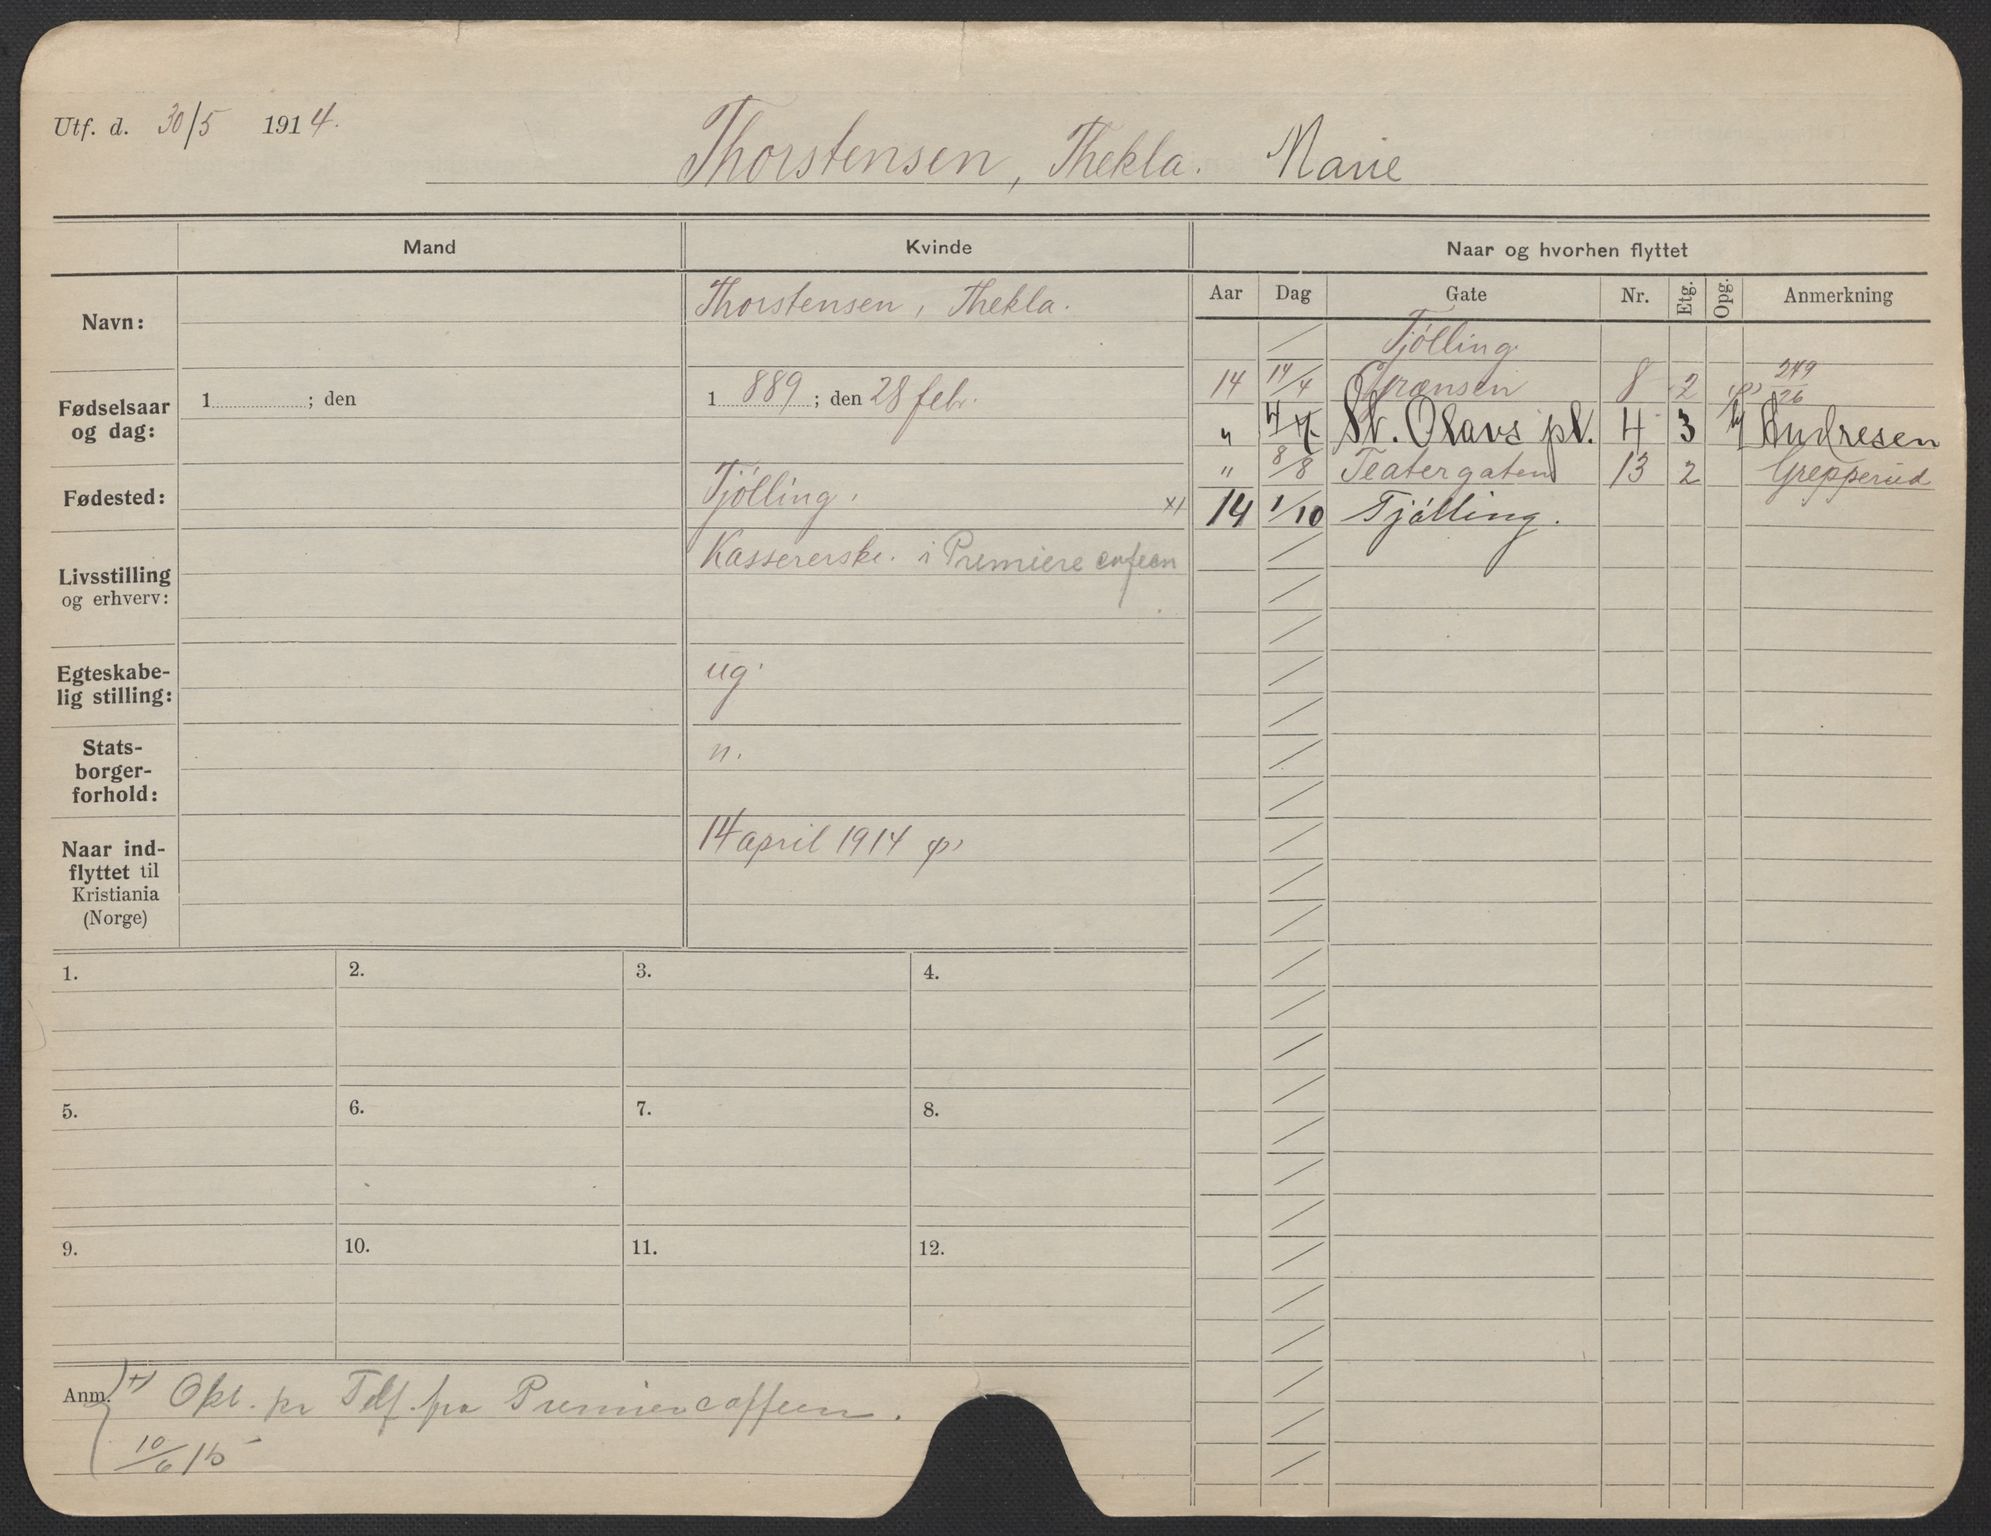 Utf. d. 30/5 1914.
Thorstensen, Thekla. Marie
Mand Kvinde Naar og hvorhen flyttet
Aar Dag Gate Nr. Etg. Opg. Anmerkning
Navn: Thorstensen, Thekla.
Fødselsaar og dag: 1 ; den 1 889 ; den 28 febr.
Fødested: Tjølling.
Livsstilling og erhverv: Kassererske. i Premiere cafeen
Egteskabe-
lig stilling: ug.
Stats-
borger-
forhold: n.
Naar ind-
flyttet til
Kristiania
(Norge) 14 april 1914
Tjølling.
14 14/4 Grænsen 8 2 249/26
" St. Olavs pl. 4 3 Andresen
" 8/8 Teatergaten 13 2 Grepperud
x) 14 1/10 Tjølling.
1. 2. 3. 4.
5. 6. 7. 8.
9. 10. 11. 12.
Anm. Opl. pr Telf. fra Premierecaffeen.
10/6 15